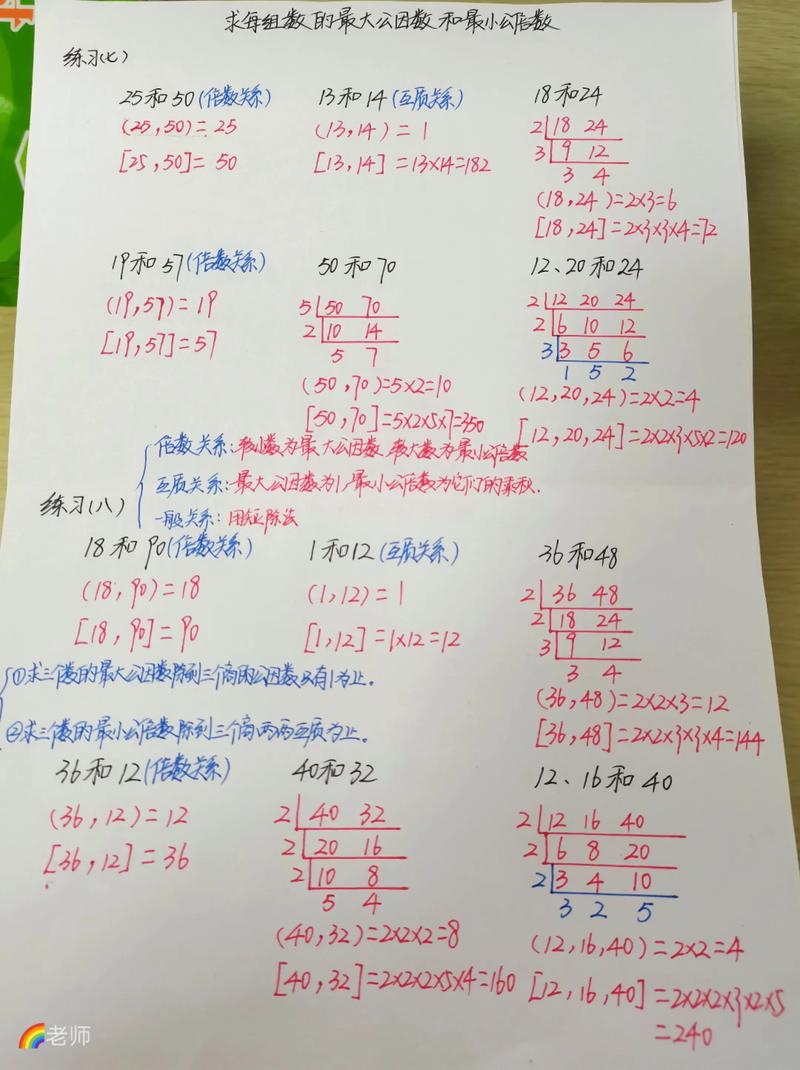 求每组数的最大公因数和最小公倍数
练习(七)
25和50(倍数关系)
(25,50)=25
[25,50]=50
13和14(互质关系)
(13,14)=1
[13,14]=13×14=182
18和24
2 18 24
3 9 12
3 4
(18,24)=2×3=6
[18,24]=2×3×3×4=72
19和57(倍数关系)
(19,57)=19
[19,57]=57
50和70
5 50 70
2 10 14
5 7
(50,70)=5×2=10
[50,70]=5×2×5×7=350
12、20和24
2 12 20 24
2 6 10 12
3 3 5 6
1 5 2
(12,20,24)=2×2=4
[12,20,24]=2×2×3×5×2=120
倍数关系:较小数为最大公因数,较大数为最小公倍数
互质关系:最大公因数为1,最小公倍数为它们的乘积.
一般关系:用短除法
练习(八)
18和90(倍数关系)
(18,90)=18
[18,90]=90
1和12(互质关系)
(1,12)=1
[1,12]=1×12=12
36和48
2 36 48
2 18 24
3 9 12
3 4
(36,48)=2×2×3=12
[36,48]=2×2×3×3×4=144
①求三个数的最大公因数除到三个商的公因数只有1为止。
②求三个数的最小公倍数除到三个商两两互质为止。
36和12(倍数关系)
(36,12)=12
[36,12]=36
40和32
2 40 32
2 20 16
2 10 8
5 4
(40,32)=2×2×2=8
[40,32]=2×2×2×5×4=160
12、16和40
2 12 16 40
2 6 8 20
2 3 4 10
3 2 5
(12,16,40)=2×2=4
[12,16,40]=2×2×2×3×2×5
=240
老师